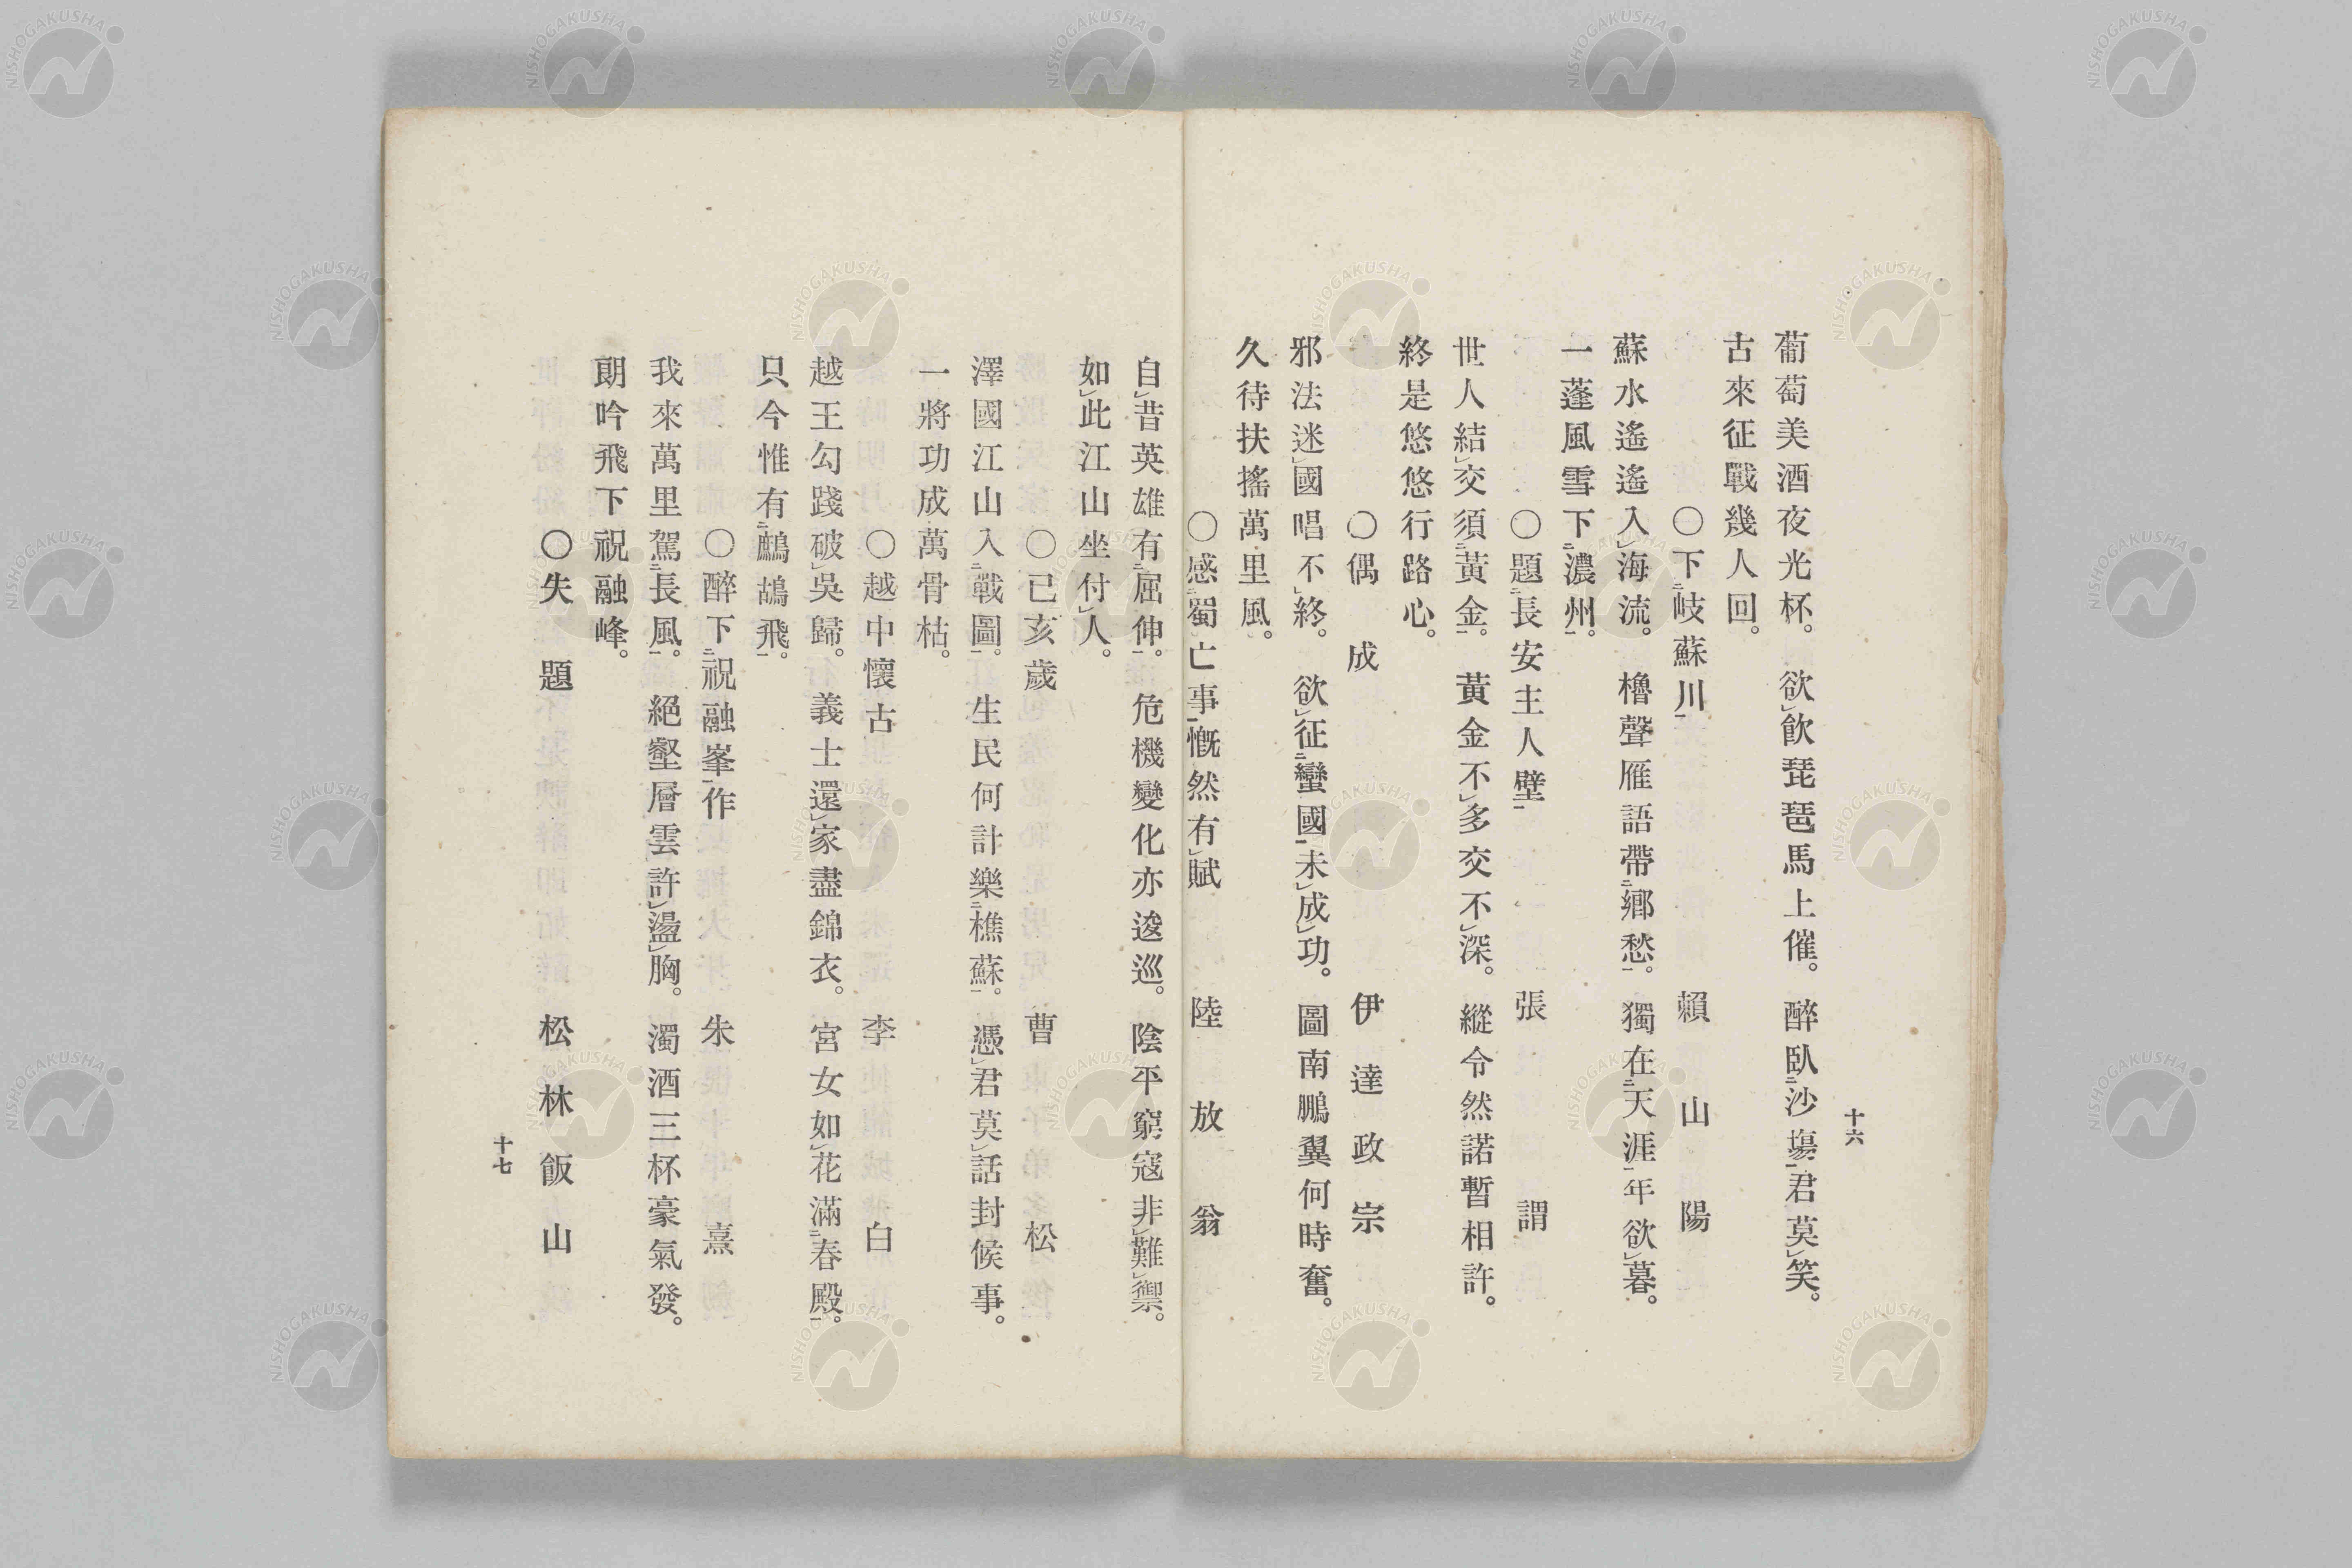 十六
葡萄美酒夜光杯。欲㆑飮琵琶馬上催。醉臥㆓沙塲㆒君莫㆑笑。
古來征戰幾人回。
〇下㆓岐蘇川㆒　賴山陽
蘇水遙遙入㆑海流。櫓聲雁語帶㆓鄕愁㆒。獨在㆓天涯㆒年欲㆑暮。
一蓬風雪下㆓濃州㆒。
〇題㆓長安主人壁㆒　張謂
世人結㆑交須㆓黃金㆒。黃金不㆑多交不㆑深。縱令然諾暫相許。
終是悠悠行路心。
〇偶成　伊達政宗
邪法迷㆑國唱不㆑終。欲㆑征㆓蠻國㆒未㆑成㆑功。圖南鵬翼何時奮。
久待扶搖萬里風。
〇感㆓蜀亡事㆒慨然有㆑賦　陸放翁
自㆑昔英雄有㆓屈伸㆒。危機變化亦逡巡。陰平窮寇非㆑難㆑禦。
如㆑此江山坐付㆑人。
〇己亥歲　曹松
澤國江山入㆓戰圖㆒。生民何計樂㆓樵蘇㆒。憑㆑君莫㆑話封候事。
一將功成萬骨枯。
〇越中懷古　李白
越王勾踐破㆑吳歸。義士還㆑家盡錦衣。宮女如㆑花滿㆓春殿㆒。
只今惟有㆓鷓鴣飛㆒。
〇醉下㆓祝融峯㆒作　朱熹
我來萬里駕㆓長風㆒。絕壑層雲許㆑盪㆑胸。濁酒三杯豪氣發。
朗吟飛下祝融峰。
〇失題　松林飯山
十七
NISHOGAKUSHA